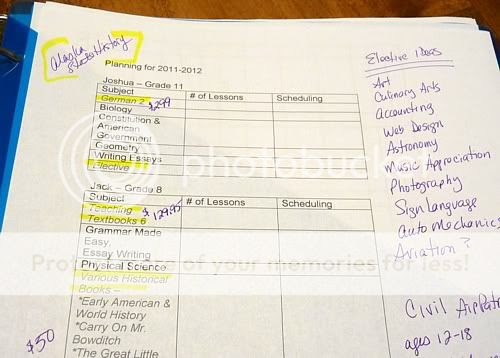 Alaska
State History
Planning for 2011-2012
Joshua – Grade 11
Subject # of Lessons Scheduling
German 2 $299
Biology
Constitution &
American
Government
Geometry
Writing Essays
Elective
Jack – Grade 8
Subject # of Lessons Scheduling
Teaching
Textbooks 6 $129.95
Grammar Made
Easy,
Essay Writing
Physical Science
Various Historical
Books –
*Early American &
World History
*Carry On Mr.
Bowditch
*The Great Little
$50
Elective Ideas
Art
Culinary Arts
Accounting
Web Design
Astronomy
Music Appreciation
Photography
Sign Language
Auto Mechanics
Aviation?
Civil Air Patr
ages 12-18
photobucket
Protect more of your memories for less!